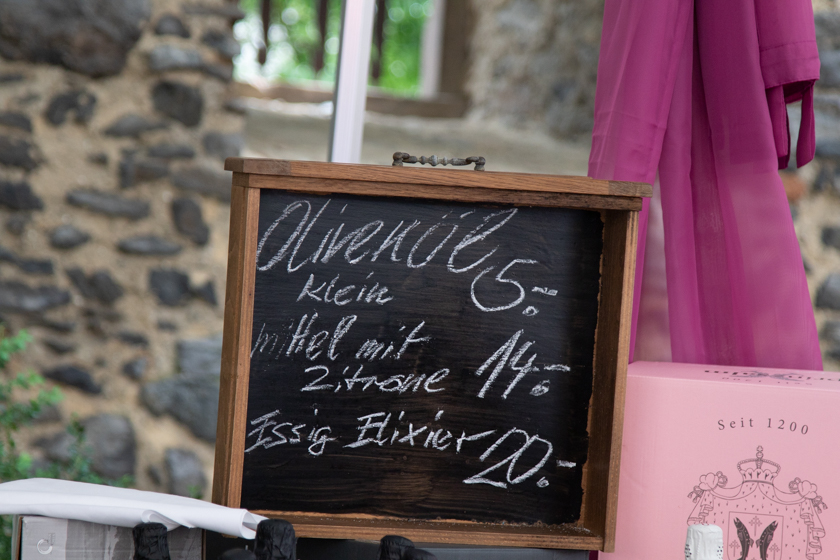 Olivenöl
klein 5.-
mittel mit
Zitrone 14.-
Essig Elixier 20.-
Seit 1200